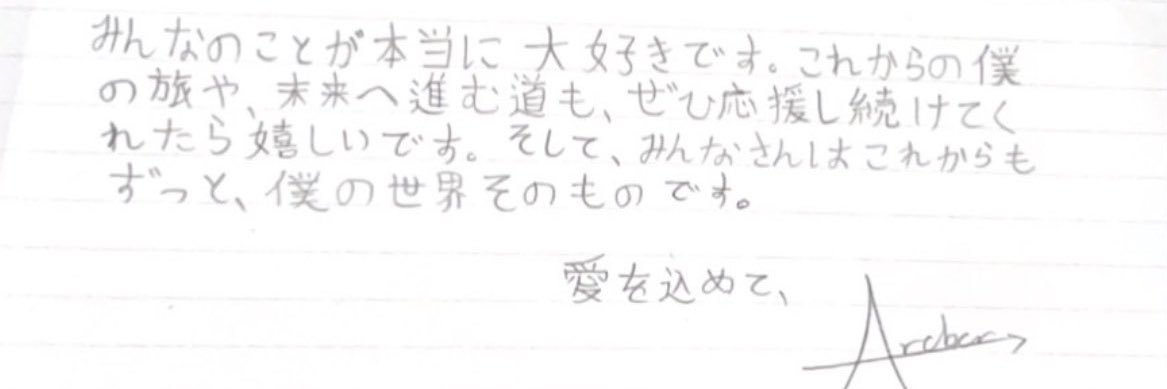 みんなのことが本当に大好きです。これからの僕
の旅や、未来へ進む道も、ぜひ応援し続けてく
れたら嬉しいです。そして、みんなさんはこれからも
ずっと、僕の世界そのものです。
愛を込めて、
Archer